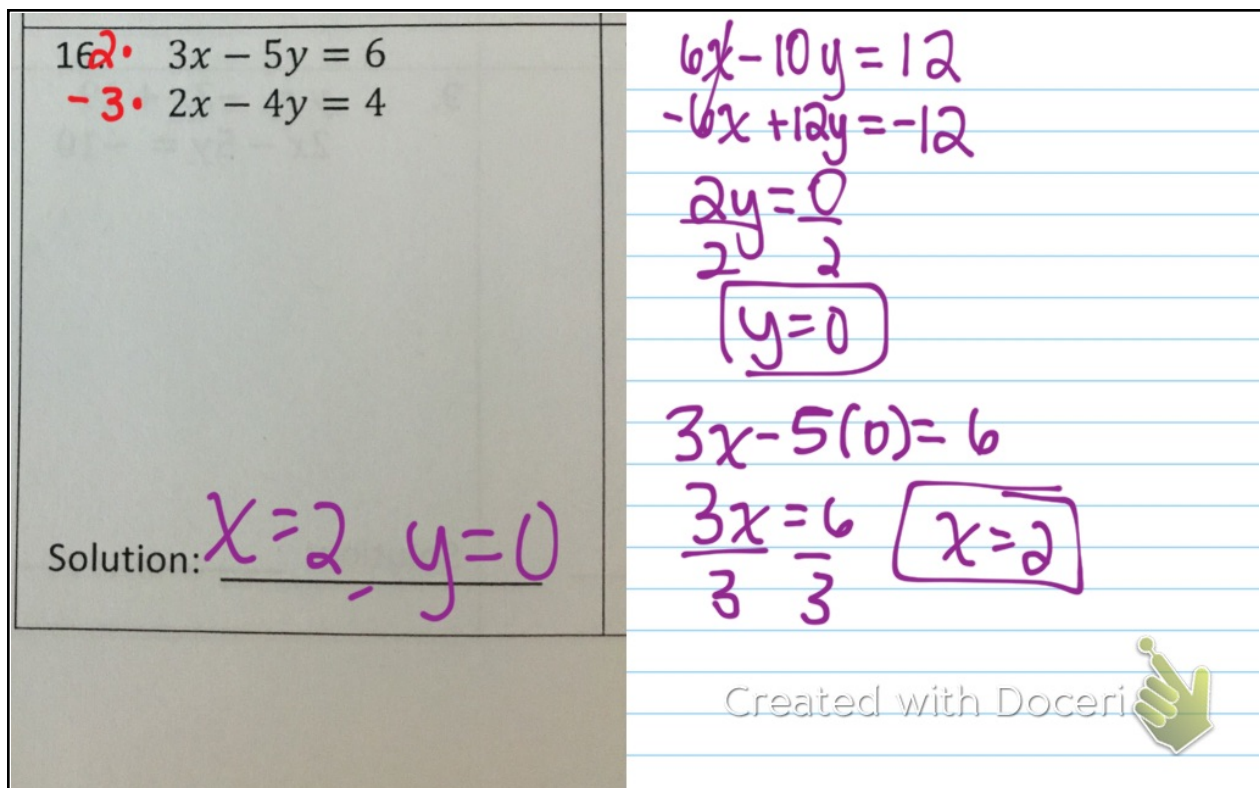 16. 2· 3x – 5y = 6
-3· 2x – 4y = 4
Solution: x=2, y=0
6x-10y=12
-6x+12y=-12
2y=0
2 2
y=0
3x-5(0)=6
3x=6
3 3
x=2
Created with Doceri